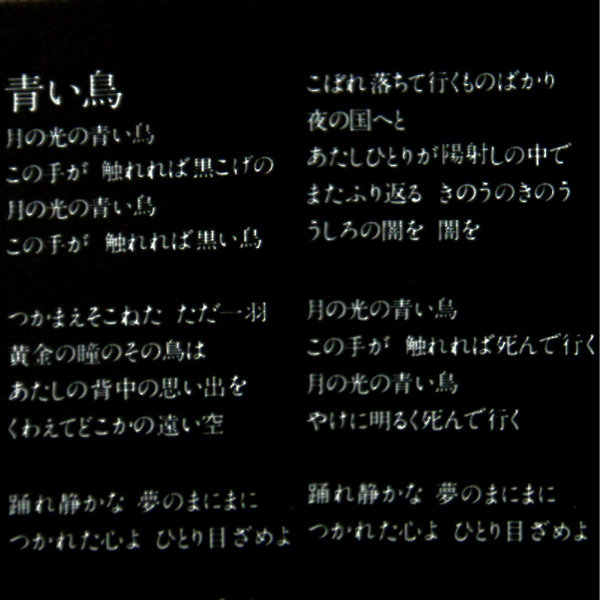 青い鳥
月の光の青い鳥
この手が 触れれば黒こげの
月の光の青い鳥
この手が 触れれば黒い鳥
つかまえそこねた ただ一羽
黄金の瞳のその鳥は
あたしの背中の思い出を
くわえてどこかの遠い空
踊れ静かな 夢のまにまに
つかれた心よ ひとり目ざめよ
こぼれ落ちて行くものばかり
夜の国へと
あたしひとりが陽射しの中で
またふり返る きのうのきのう
うしろの闇を 闇を
月の光の青い鳥
この手が 触れれば死んで行く
月の光の青い鳥
やけに明るく死んで行く
踊れ静かな 夢のまにまに
つかれた心よ ひとり目ざめよ